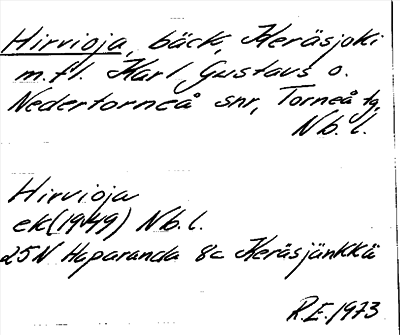 Hirvioja, bäck, Keräsjoki
m.fl. Karl Gustavs o.
Nedertorneå snr, Torneå tg,
Nb. l.
Hirvioja
ek(1949) Nb.l.
25N Haparanda 8c Keräsjänkkä
R.E. 1973